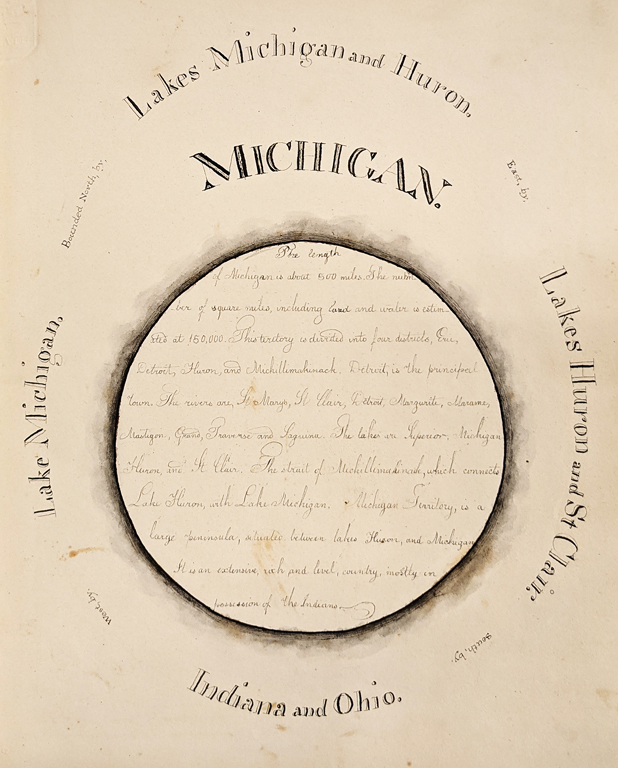 Lakes Michigan and Huron.
MICHIGAN.
Bounded North, by.
East, by.
Lakes Huron and St Clair.
South, by.
Indiana and Ohio.
West, by.
Lake Michigan.
The length
of Michigan is about 500 miles. The num
ber of square miles, including land and water is estim
ated at 150,000. This territory is divided into four districts, Erie,
Detroit, Huron, and Michillimakinack. Detroit, is the principal
town. The rivers are, St Marys, St Clair, Detroit, Margurite, Marame,
Mastigon, Grand, Traverse and Saguina. The lakes are Superior, Michigan
Huron, and St Clair. The strait of Michillimakinak, which connects
Lake Huron, with Lake Michigan. Michigan Territory, is a
large peninsula, situated between lakes Huron, and Michigan
It is an extensive, rich and level, country, mostly in
possession of the Indians